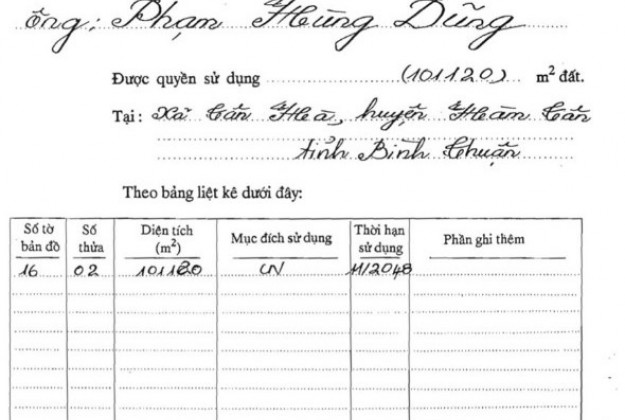 Ông: Phạm Hùng Dũng
Được quyền sử dụng (101120) m² đất.
Tại: Xã Tân Hà, huyện Hàm Tân
tỉnh Bình Thuận
Theo bảng liệt kê dưới đây:
Số tờ bản đồ Số thửa Diện tích (m²) Mục đích sử dụng Thời hạn sử dụng Phần ghi thêm
16 02 101120 LN 11/2048